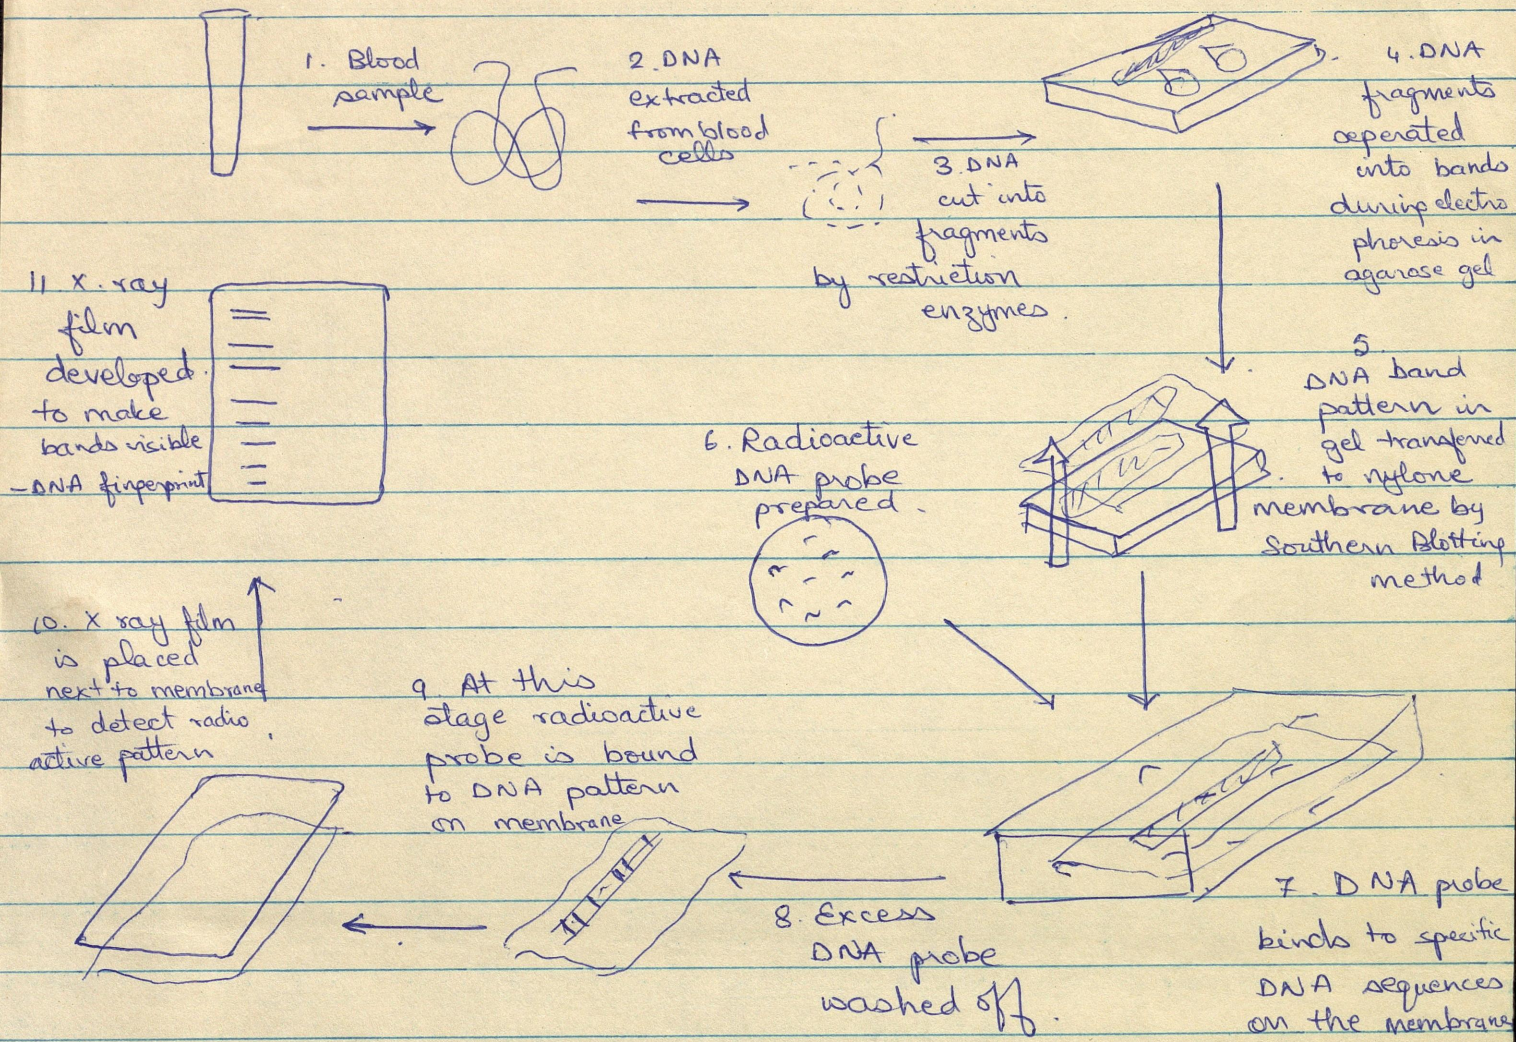 1. Blood
sample
2. DNA
extracted
from blood
cells
3. DNA
cut into
fragments
by restriction
enzymes.
4. DNA
fragments
seperated
into bands
during electro
phoresis in
agarose gel
5
DNA band
pattern in
gel transferred
to nylone
membrane by
Southern Blotting
method
6. Radioactive
DNA probe
prepared.
7. DNA probe
binds to specific
DNA sequences
on the membrane
8. Excess
DNA probe
washed off.
9. At this
stage radioactive
probe is bound
to DNA pattern
on membrane
10. X ray film
is placed
next to membrane
to detect radio
active pattern
11. X-ray
film
developed
to make
bands visible
-DNA fingerprint